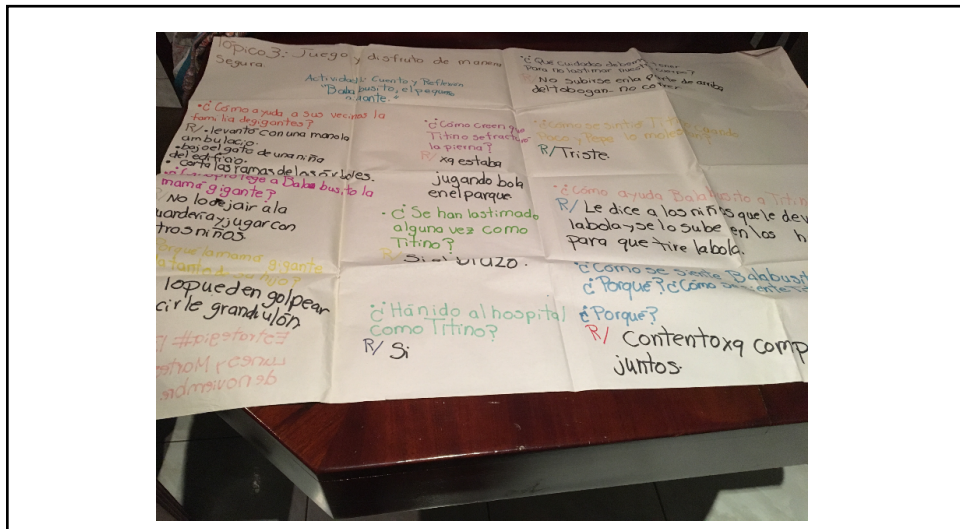 Tópico 3: Juego y disfruto de manera
Segura.
Actividad: Cuento y Reflexión
"Balabusito, el pequeño
gigante."
·¿Cómo ayuda a sus vecinos la
familia de gigantes?
R/·levanto con una mano la
ambulacio.
·bajo el gato de una niña
del edificio.
·corta las ramas de los árboles.
protege a Balabusito la
mamá gigante?
No lo dejair a la
uardería y jugar con
tros niños.
Porqué la mamá gigante
tanto de su hijo?
lo pueden golpear
cirle grandulón
Estrategia#
Lunes y Martes
de noviembre.
·¿Cómo creen que
Titino se fracturo
la pierna?
R/ xq estaba
jugando bola
en el parque
·¿Se han lastimado
alguna vez como
Titino?
R/ Si el brazo.
·¿Hánido al hospital
como Titino?
R/ Si
·¿Que cuidados debemos tener
para no lastimar nuestro cuerpo?
No subirse en la parte de arriba
del tobogan- no correr
¿Cómo se sintió
Paco y Pepe lo molestan
R/Triste.
·¿Cómo ayuda Balabusito a Titin
R/ Le dice a los niños que le dev
la bola y se lo sube en los h
para que tire la bola.
¿Cómo se siente Balabusit
¿Porque? ¿Cómo se siente Ti
¿Porque?
R/ Contento xq comp
juntos.